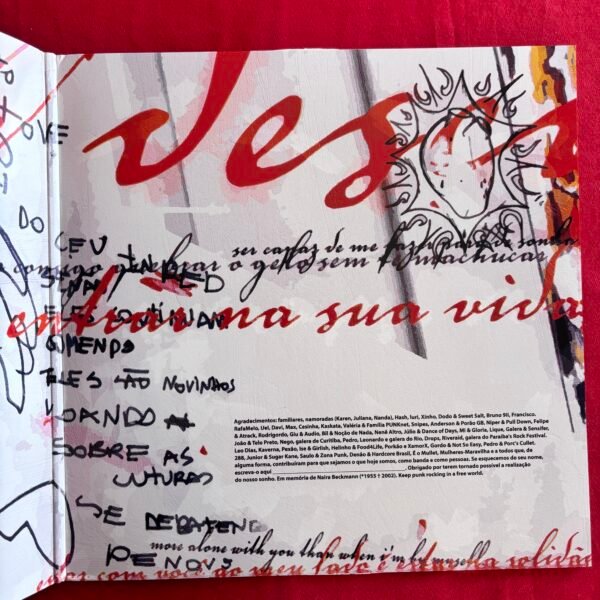 des
OVE
DO CEU
ser capaz de me fazer parar de sonha
comigo quebrar o gelo sem te machucar
entrar na sua vida
COMENDO
ELES SÃO NOVINHOS
VOANDO
SOBRE AS
CULTURAS
SE DEBATENDO
DE NOVO
Agradecimentos: familiares, namoradas (Karen, Juliana, Nanda), Hash, Iuri, Xinho, Dodo & Sweet Salt, Bruno 9li, Francisco.
RafaMelo, Uel, Davi, Max, Cesinha, Kaskata, Valéria & Família PUNKnet, Snipes, Anderson & Porão GB, Niper & Pull Down, Felipe
& Atrack, Rodrigordo, Glu & Audio, Bil & Noção de Nada, Nenê Altro, Júlio & Dance of Days, Mi & Gloria, Lique, Galera & Sensifer,
João & Tele Preto, Nego, galera de Curitiba, Pedro, Leonardo e galera do Rio, Drops, Riveraid, galera do Paraíba's Rock Festival.
Leo Dias, Kaverna, Pexão, Ise & Girlish, Helinho & Food4Life, Perkão e XamorX, Gordo & Not So Easy, Pedro & Porc's Cullet.
288, Junior & Sugar Kane, Saulo & Zona Punk, Denão & Hardcore Brasil, É o Mullet, Mulheres-Maravilha e a todos que, de
alguma forma, contribuiram para que sejamos o que hoje somos, como banda e como pessoas. Se esquecemos de seu nome,
escreva-o aqui ____________________. Obrigado por terem tornado possível a realização
do nosso sonho. Em memória de Naira Beckmann (*1955 † 2002). Keep punk rocking in a free world.
more alone with you than when i'm by myself
estar com você ao meu lado é extrema solidão